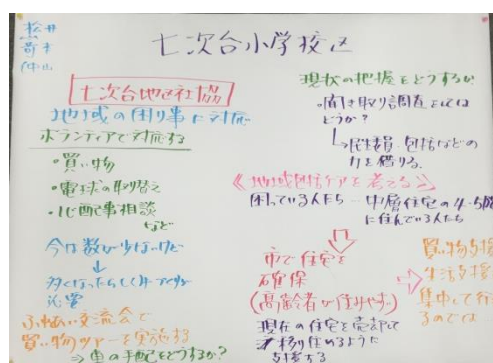 松井
仲山
七次台小学校区
七次台地区社協
地域の困り事に対応
ボランティアで対応する
・買い物
・電球の取り替え
・心配事相談
など
今は数が少ないけど
↓
多くなったらしくみづくり
必要
ふれあい交流会で
買い物ツアーを実施する
⇒車の手配をどうするか?
現状の把握をどうするか
・聞き取り調査をしては
どうか?
↳民生委員、包括などの
力を借りる。
《地域包括ケアを考える》
困っている人たち − 中層住宅の4-5階
に住んでいる人たち
市で住宅を
確保
(高齢者が住みやすい)
現在の住宅を売却して
移り住めるように
支援する
買い物支援
生活支援
集中して行え
るのでは